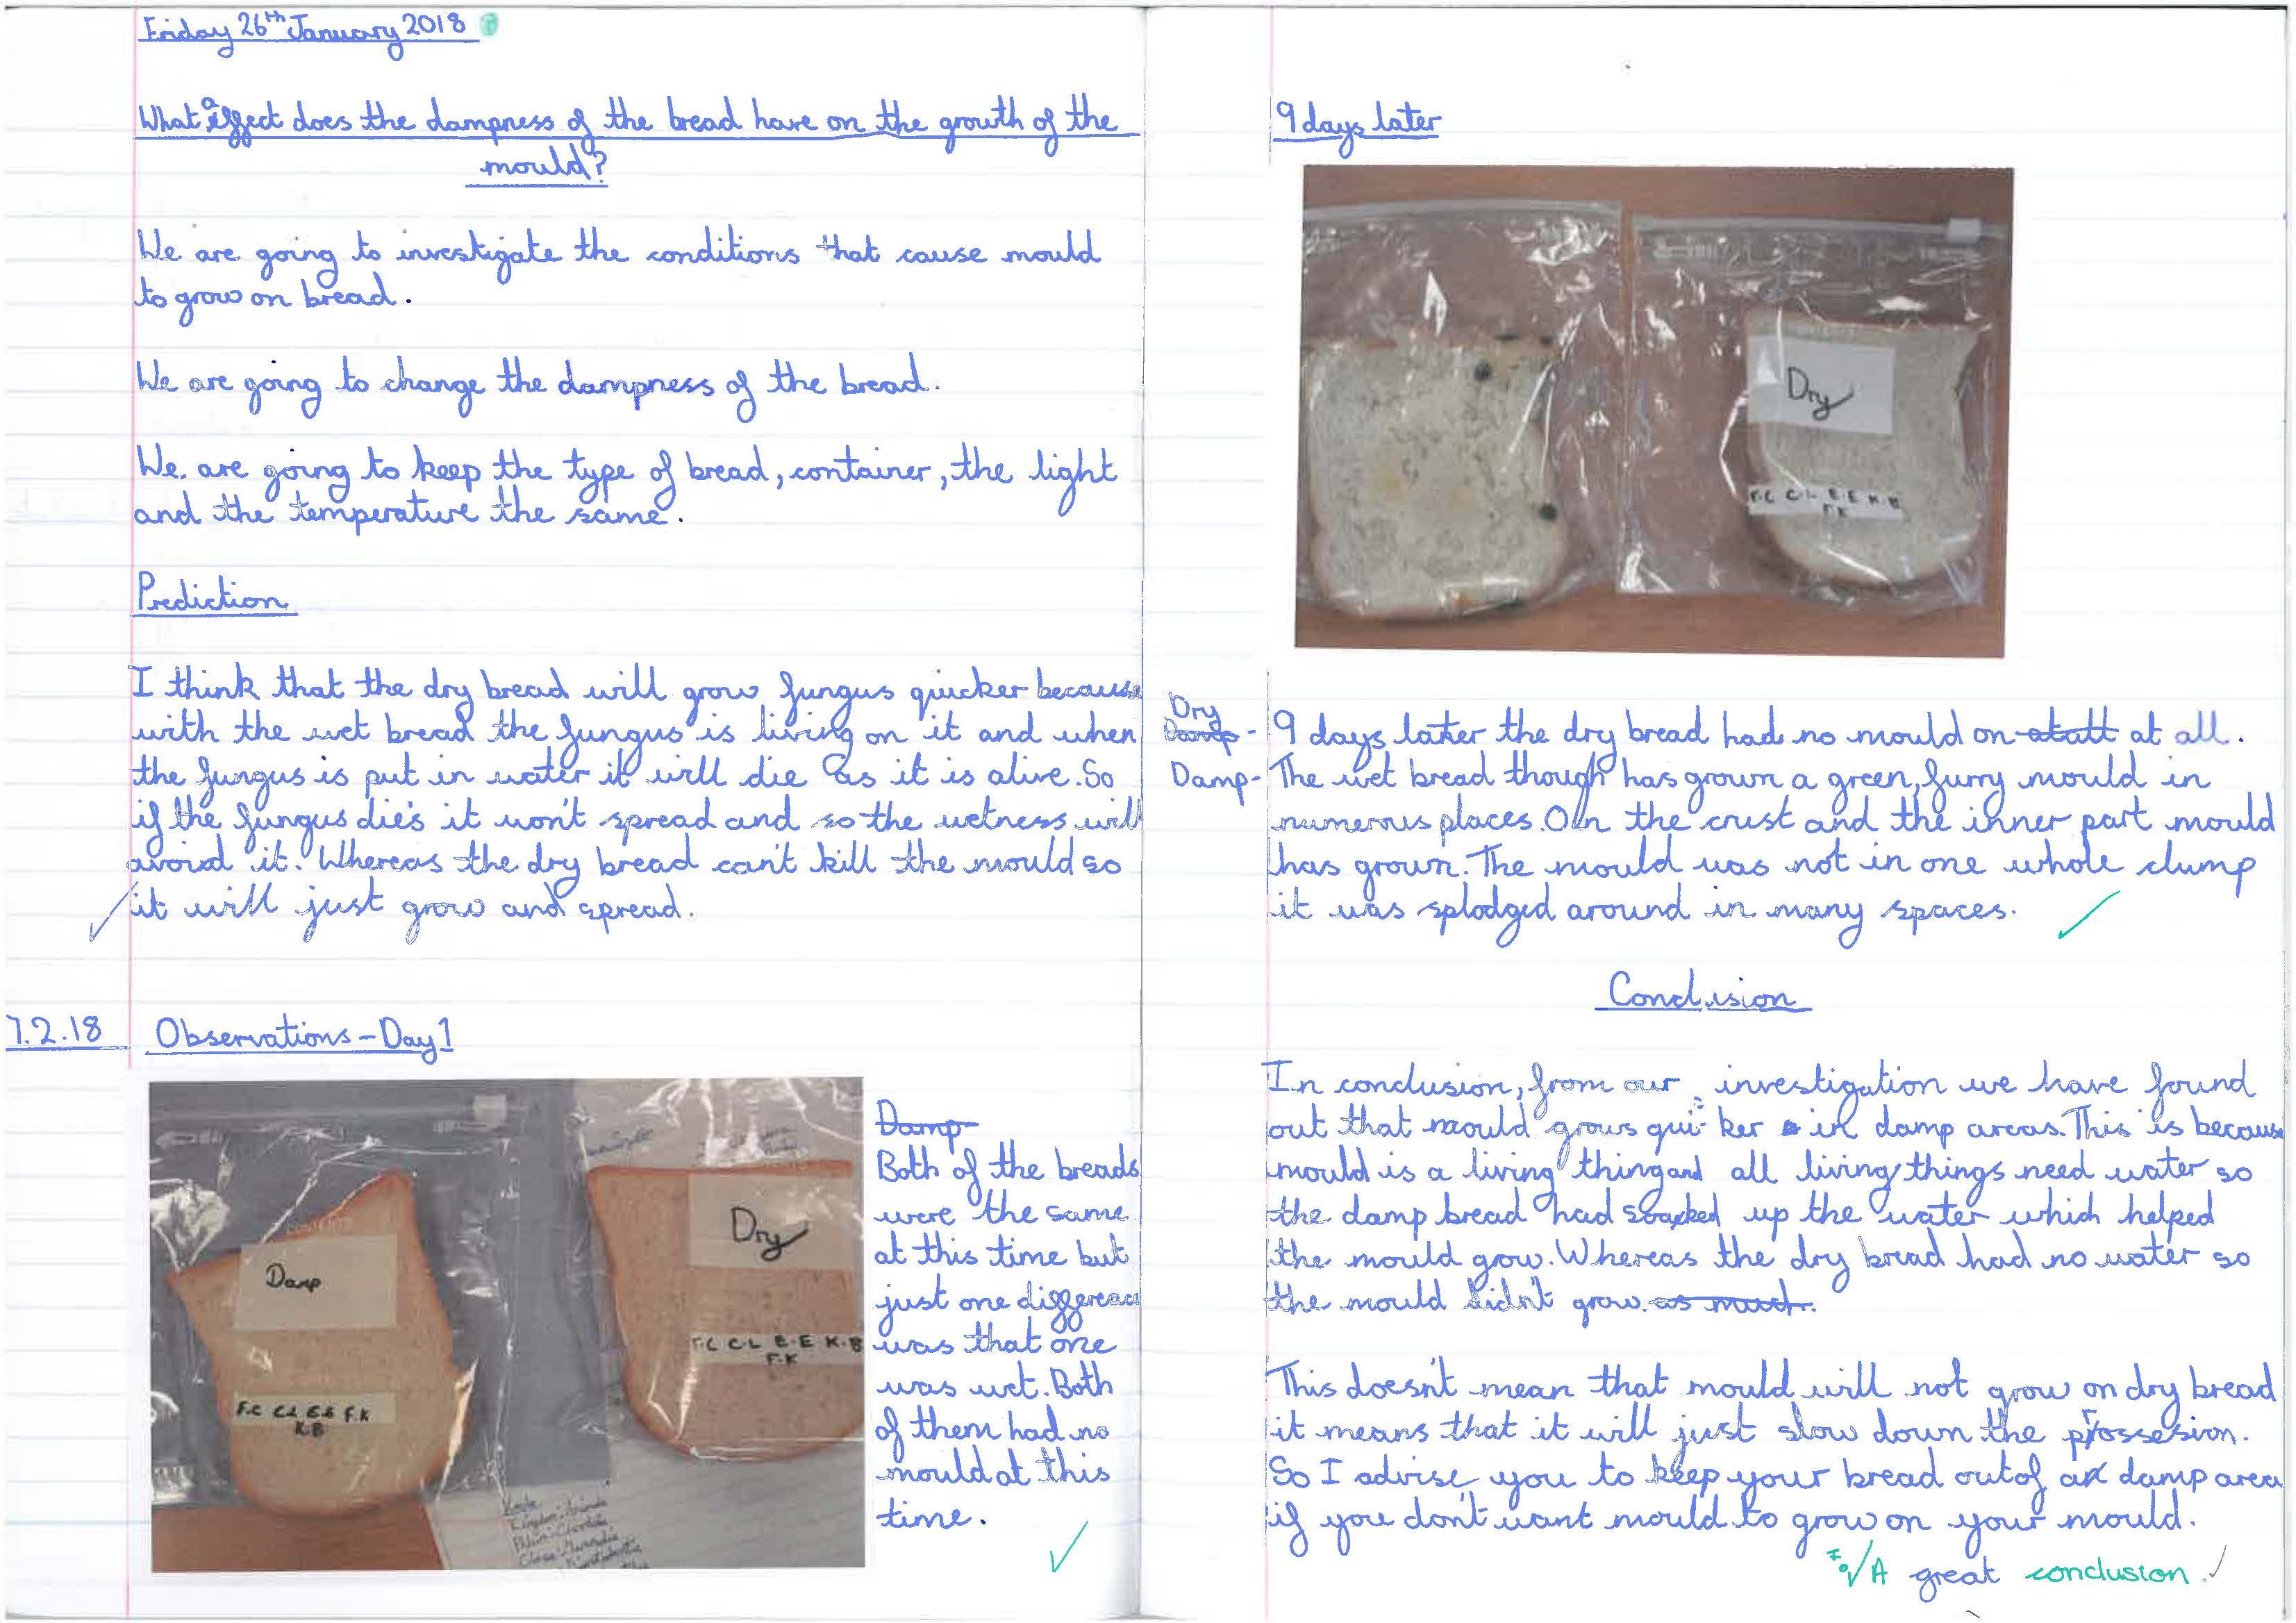 Friday 26th January 2018
What affect does the dampness of the bread have on the growth of the
mould?
We are going to investigate the conditions that cause mould
to grow on bread.
We are going to change the dampness of the bread.
We are going to keep the type of bread, container, the light
and the temperature the same.
Prediction
I think that the dry bread will grow fungus quicker because
with the wet bread the fungus is living on it and when
the fungus is put in water it will die as it is alive. So
if the fungus dies it won't spread and so the wetness will
avoid it. Whereas the dry bread can't kill the mould so
it will just grow and spread.
7.2.18 Observations - Day 1
Damp
F.C C.L E.E F.K
K.B
Dry
F.C C.L E.E K.B
F.K
Damp
Both of the breads
were the same
at this time but
just one differenc
was that one
was wet. Both
of them had no
mould at this
time.
9 days later
Dry
F.C C.L E.E K.B
F.K
Dry
Damp - 9 days later the dry bread had no mould on atall at all.
Damp - The wet bread though has grown a green, furry mould in
numerous places. On the crust and the inner part mould
has grown. The mould was not in one whole clump
it was splodged around in many spaces.
Conclusion
In conclusion, from our investigation we have found
out that mould grows qui ker in damp areas. This is because
mould is a living thing and all living things need water so
the damp bread had soaked up the water which helped
the mould grow. Whereas the dry bread had no water so
the mould didn't grow. as much.
This doesn't mean that mould will not grow on dry bread
it means that it will just slow down the prossesion.
So I advise you to keep your bread out of a damp area
if you don't want mould to grow on your mould.
A great conclusion.